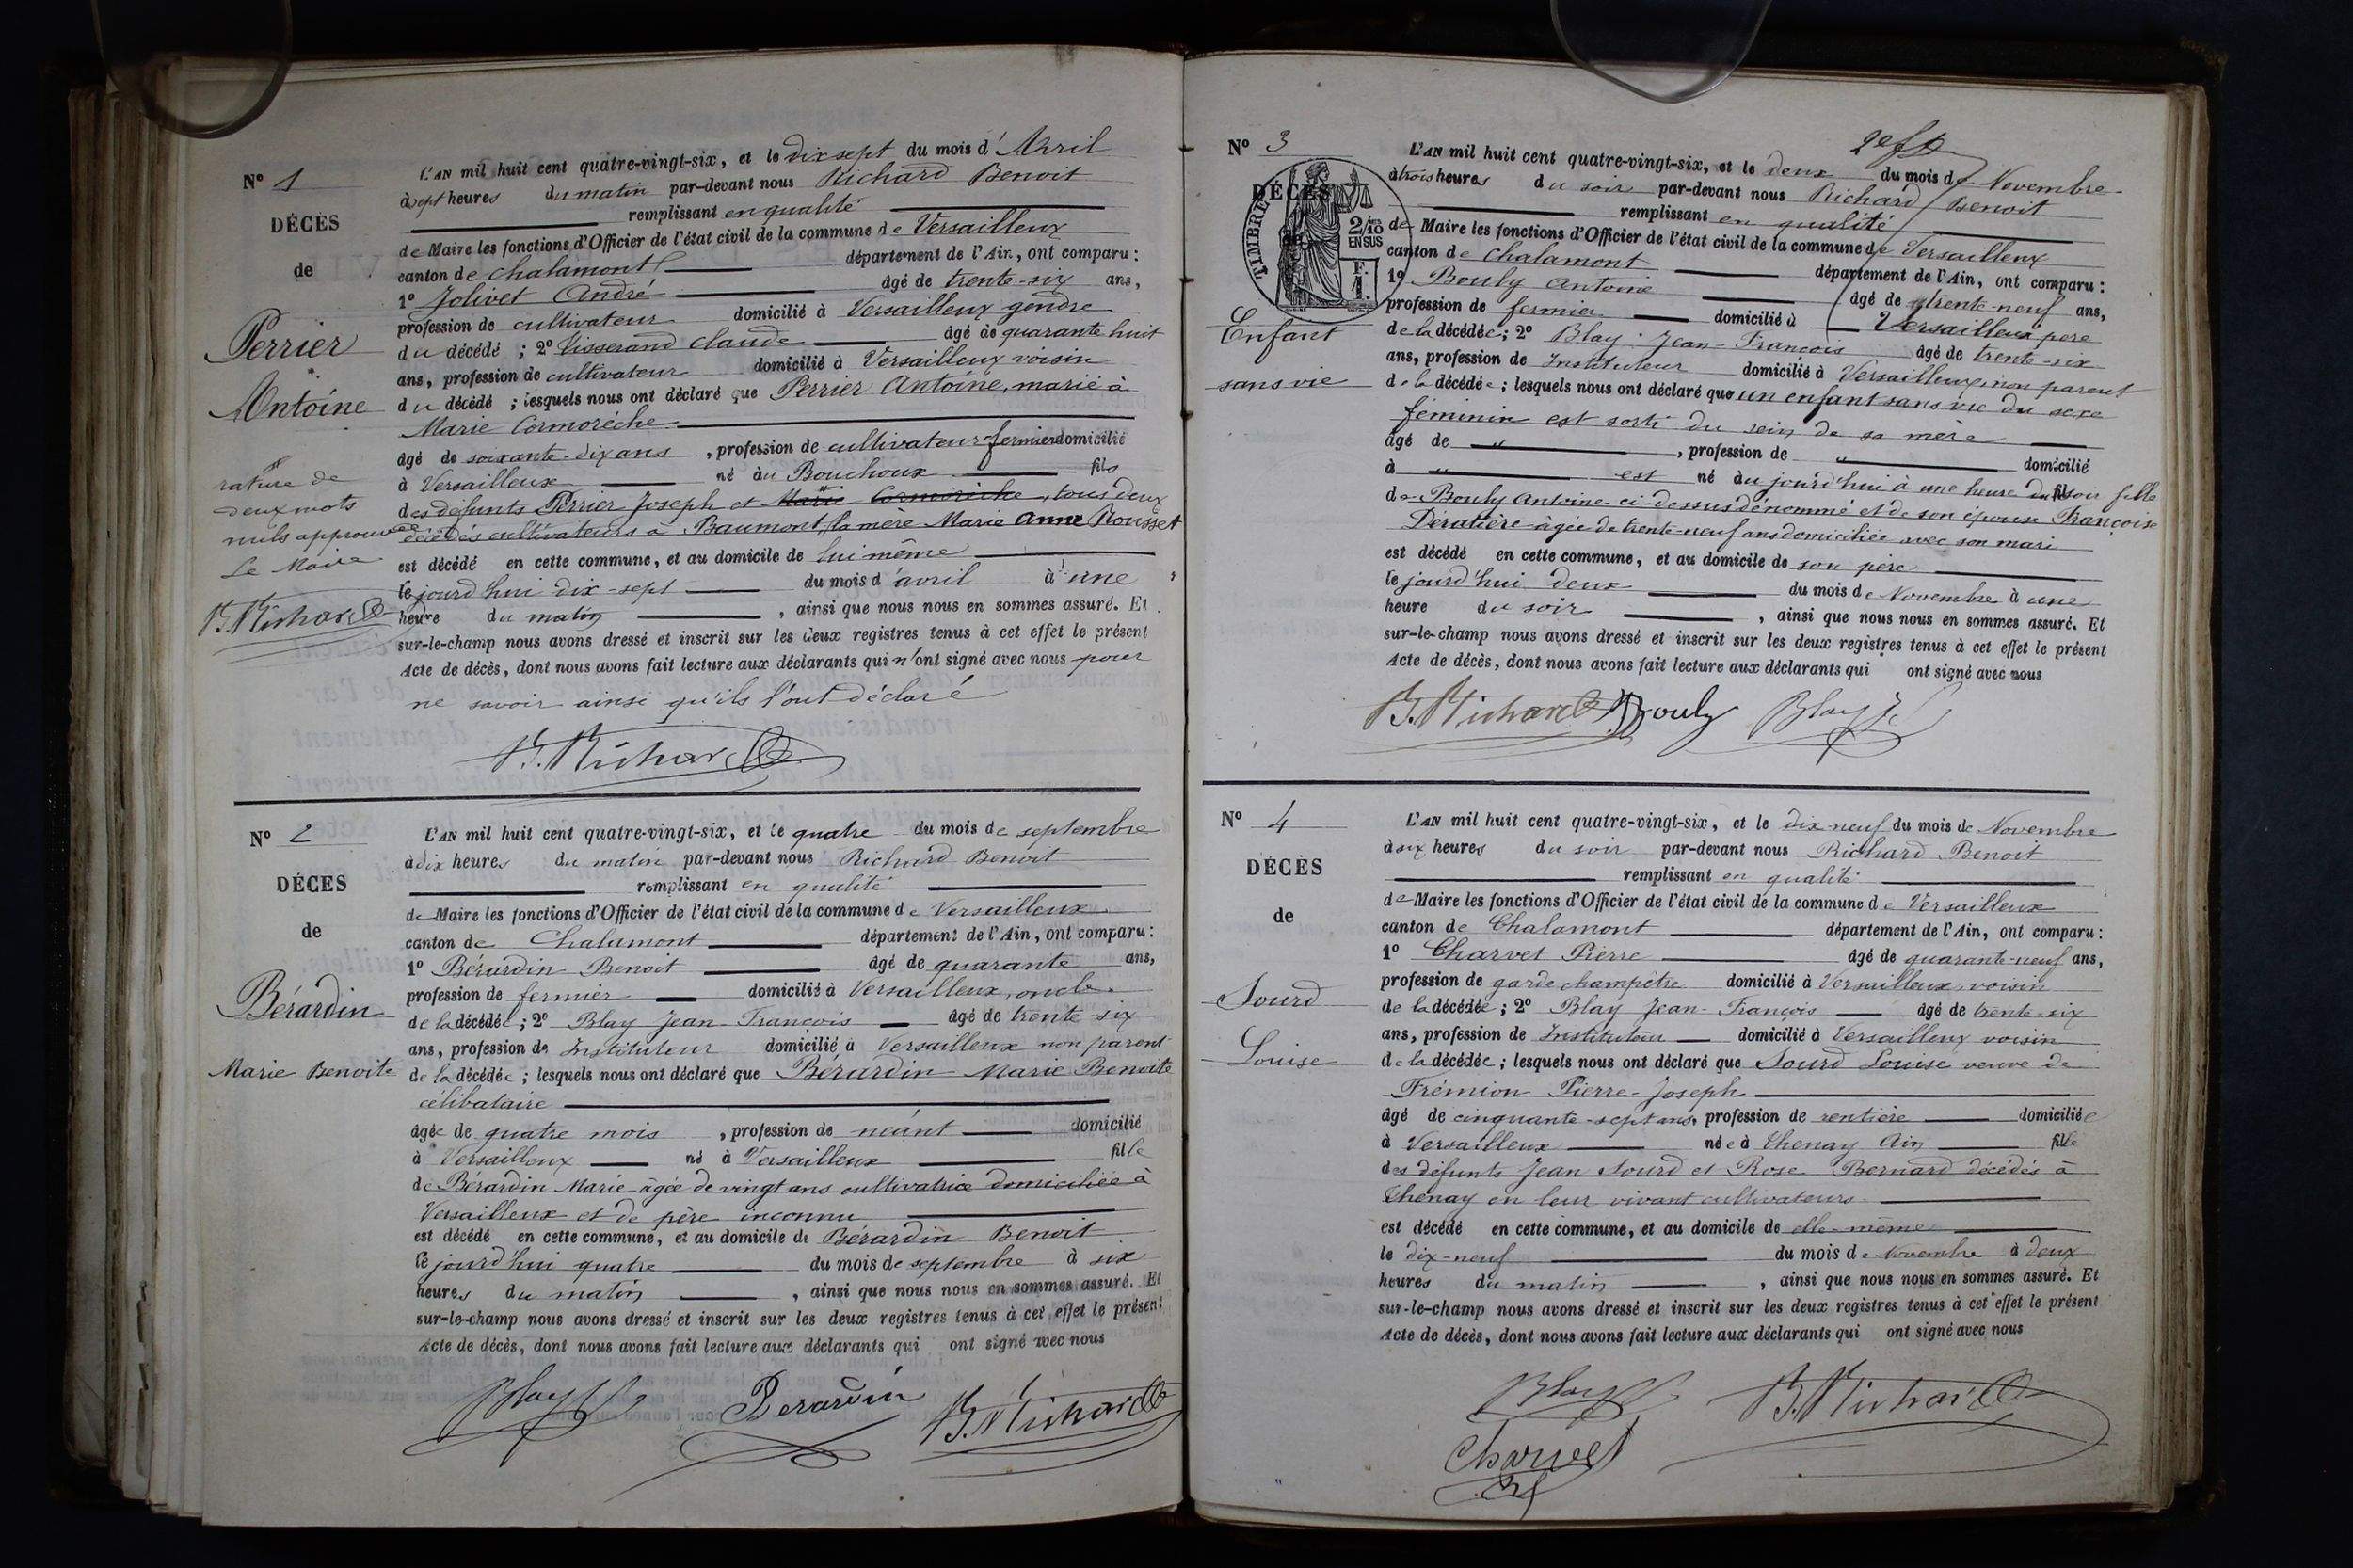 N° 1
DÉCÈS
de
Perrier
Antoine
rature de
deux mots
nuls approuvée
Le Maire
B. Richard
L'AN mil huit cent quatre-vingt-six, et le dix sept du mois d'Avril
à sept heures du matin par-devant nous Richard Benoit
remplissant en qualité
de Maire les fonctions d'Officier de l'état civil de la commune de Versailleux
canton de Chalamont département de l'Ain, ont comparu :
1° Jolivet André âgé de trente-six ans,
profession de cultivateur domicilié à Versailleux gendre
du décédé ; 2° Tisserand Claude âgé de quarante huit
ans, profession de cultivateur domicilié à Versailleux voisin
du décédé ; lesquels nous ont déclaré que Perrier Antoine, marié à
Marie Cormorèche
âgé de soixante-dix ans , profession de cultivateur-fermier domicilié
à Versailleux né au Bouchoux fils
des défunts Perrier Joseph et Marie Cormorèche, tous deux
décédés cultivateurs à Baumont, la mère Marie Anne Rousset
est décédé en cette commune, et au domicile de lui même
le jourd'hui dix-sept du mois d'avril à une
heure du matin , ainsi que nous nous en sommes assuré. Et
sur-le-champ nous avons dressé et inscrit sur les deux registres tenus à cet effet le présent
Acte de décès, dont nous avons fait lecture aux déclarants qui n'ont signé avec nous pour
ne savoir ainsi qu'ils l'ont déclaré
B. Richard
N° 2
DÉCES
de
Bérardin
Marie Benoite
L'AN mil huit cent quatre-vingt-six, et le quatre du mois de septembre
à dix heures du matin par-devant nous Richard Benoit
remplissant en qualité
de Maire les fonctions d'Officier de l'état civil de la commune de Versailleux
canton de Chalamont département de l'Ain, ont comparu :
1° Bérardin Benoit âgé de quarante ans,
profession de fermier domicilié à Versailleux, oncle
de la décédée ; 2° Blay Jean-François âgé de trente-six
ans, profession de Instituteur domicilié à Versailleux non parent
de la décédée ; lesquels nous ont déclaré que Bérardin Marie Benoite
célibataire
âgée de quatre mois , profession de néant domicilié
à Versailleux né à Versailleux fille
de Bérardin Marie âgée de vingt ans cultivatrice domiciliée à
Versailleux et de père inconnu
est décédé en cette commune, et au domicile de Bérardin Benoit
le jourd'hui quatre du mois de septembre à six
heures du matin , ainsi que nous nous en sommes assuré. Et
sur-le-champ nous avons dressé et inscrit sur les deux registres tenus à cet effet le présent
Acte de décès, dont nous avons fait lecture aux déclarants qui ont signé avec nous
Blay Berardin B. Richard
N° 3
DÉCÈS
de
TIMBRE
2/10
EN SUS
F.
1.
Enfant
sans vie
L'AN mil huit cent quatre-vingt-six, et le deux du mois de Novembre
à trois heures du soir par-devant nous Richard Benoit
remplissant en qualité
de Maire les fonctions d'Officier de l'état civil de la commune de Versailleux
canton de Chalamont département de l'Ain, ont comparu :
1° Bouly Antoine âgé de trente-neuf ans,
profession de fermier domicilié à Versailleux père
de la décédée ; 2° Blay Jean-François âgé de trente-six
ans, profession de Instituteur domicilié à Versailleux, non parent
de la décédée ; lesquels nous ont déclaré que un enfant sans vie du sexe
féminin est sorti du sein de sa mère
âgé de " , profession de " domicilié
à " est né aujourd'hui à une heure du soir fille
de Bouly Antoine ci-dessus dénommé et de son épouse Françoise
Dératière âgée de trente-neuf ans domiciliée avec son mari
est décédé en cette commune, et au domicile de son père
le jourd'hui deux du mois de Novembre à une
heure du soir , ainsi que nous nous en sommes assuré. Et
sur-le-champ nous avons dressé et inscrit sur les deux registres tenus à cet effet le présent
Acte de décès, dont nous avons fait lecture aux déclarants qui ont signé avec nous
B. Richard Bouly Blay
N° 4
DÉCÈS
de
Sourd
Louise
L'AN mil huit cent quatre-vingt-six, et le dix-neuf du mois de Novembre
à six heures du soir par-devant nous Richard Benoit
remplissant en qualité
de Maire les fonctions d'Officier de l'état civil de la commune de Versailleux
canton de Chalamont département de l'Ain, ont comparu :
1° Charvet Pierre âgé de quarante-neuf ans,
profession de garde champêtre domicilié à Versailleux, voisin
de la décédée ; 2° Blay Jean-François âgé de trente-six
ans, profession de Instituteur domicilié à Versailleux voisin
de la décédée ; lesquels nous ont déclaré que Sourd Louise veuve de
Frémion Pierre-Joseph
âgé de cinquante-sept ans, profession de rentière domiciliée
à Versailleux née à Chenay Ain fille
des défunts Jean Sourd et Rose Bernard décédés à
Chenay en leur vivant cultivateurs
est décédé en cette commune, et au domicile de elle-même
le dix-neuf du mois de Novembre à deux
heures du matin , ainsi que nous nous en sommes assuré. Et
sur-le-champ nous avons dressé et inscrit sur les deux registres tenus à cet effet le présent
Acte de décès, dont nous avons fait lecture aux déclarants qui ont signé avec nous
Blay B. Richard
Charvet